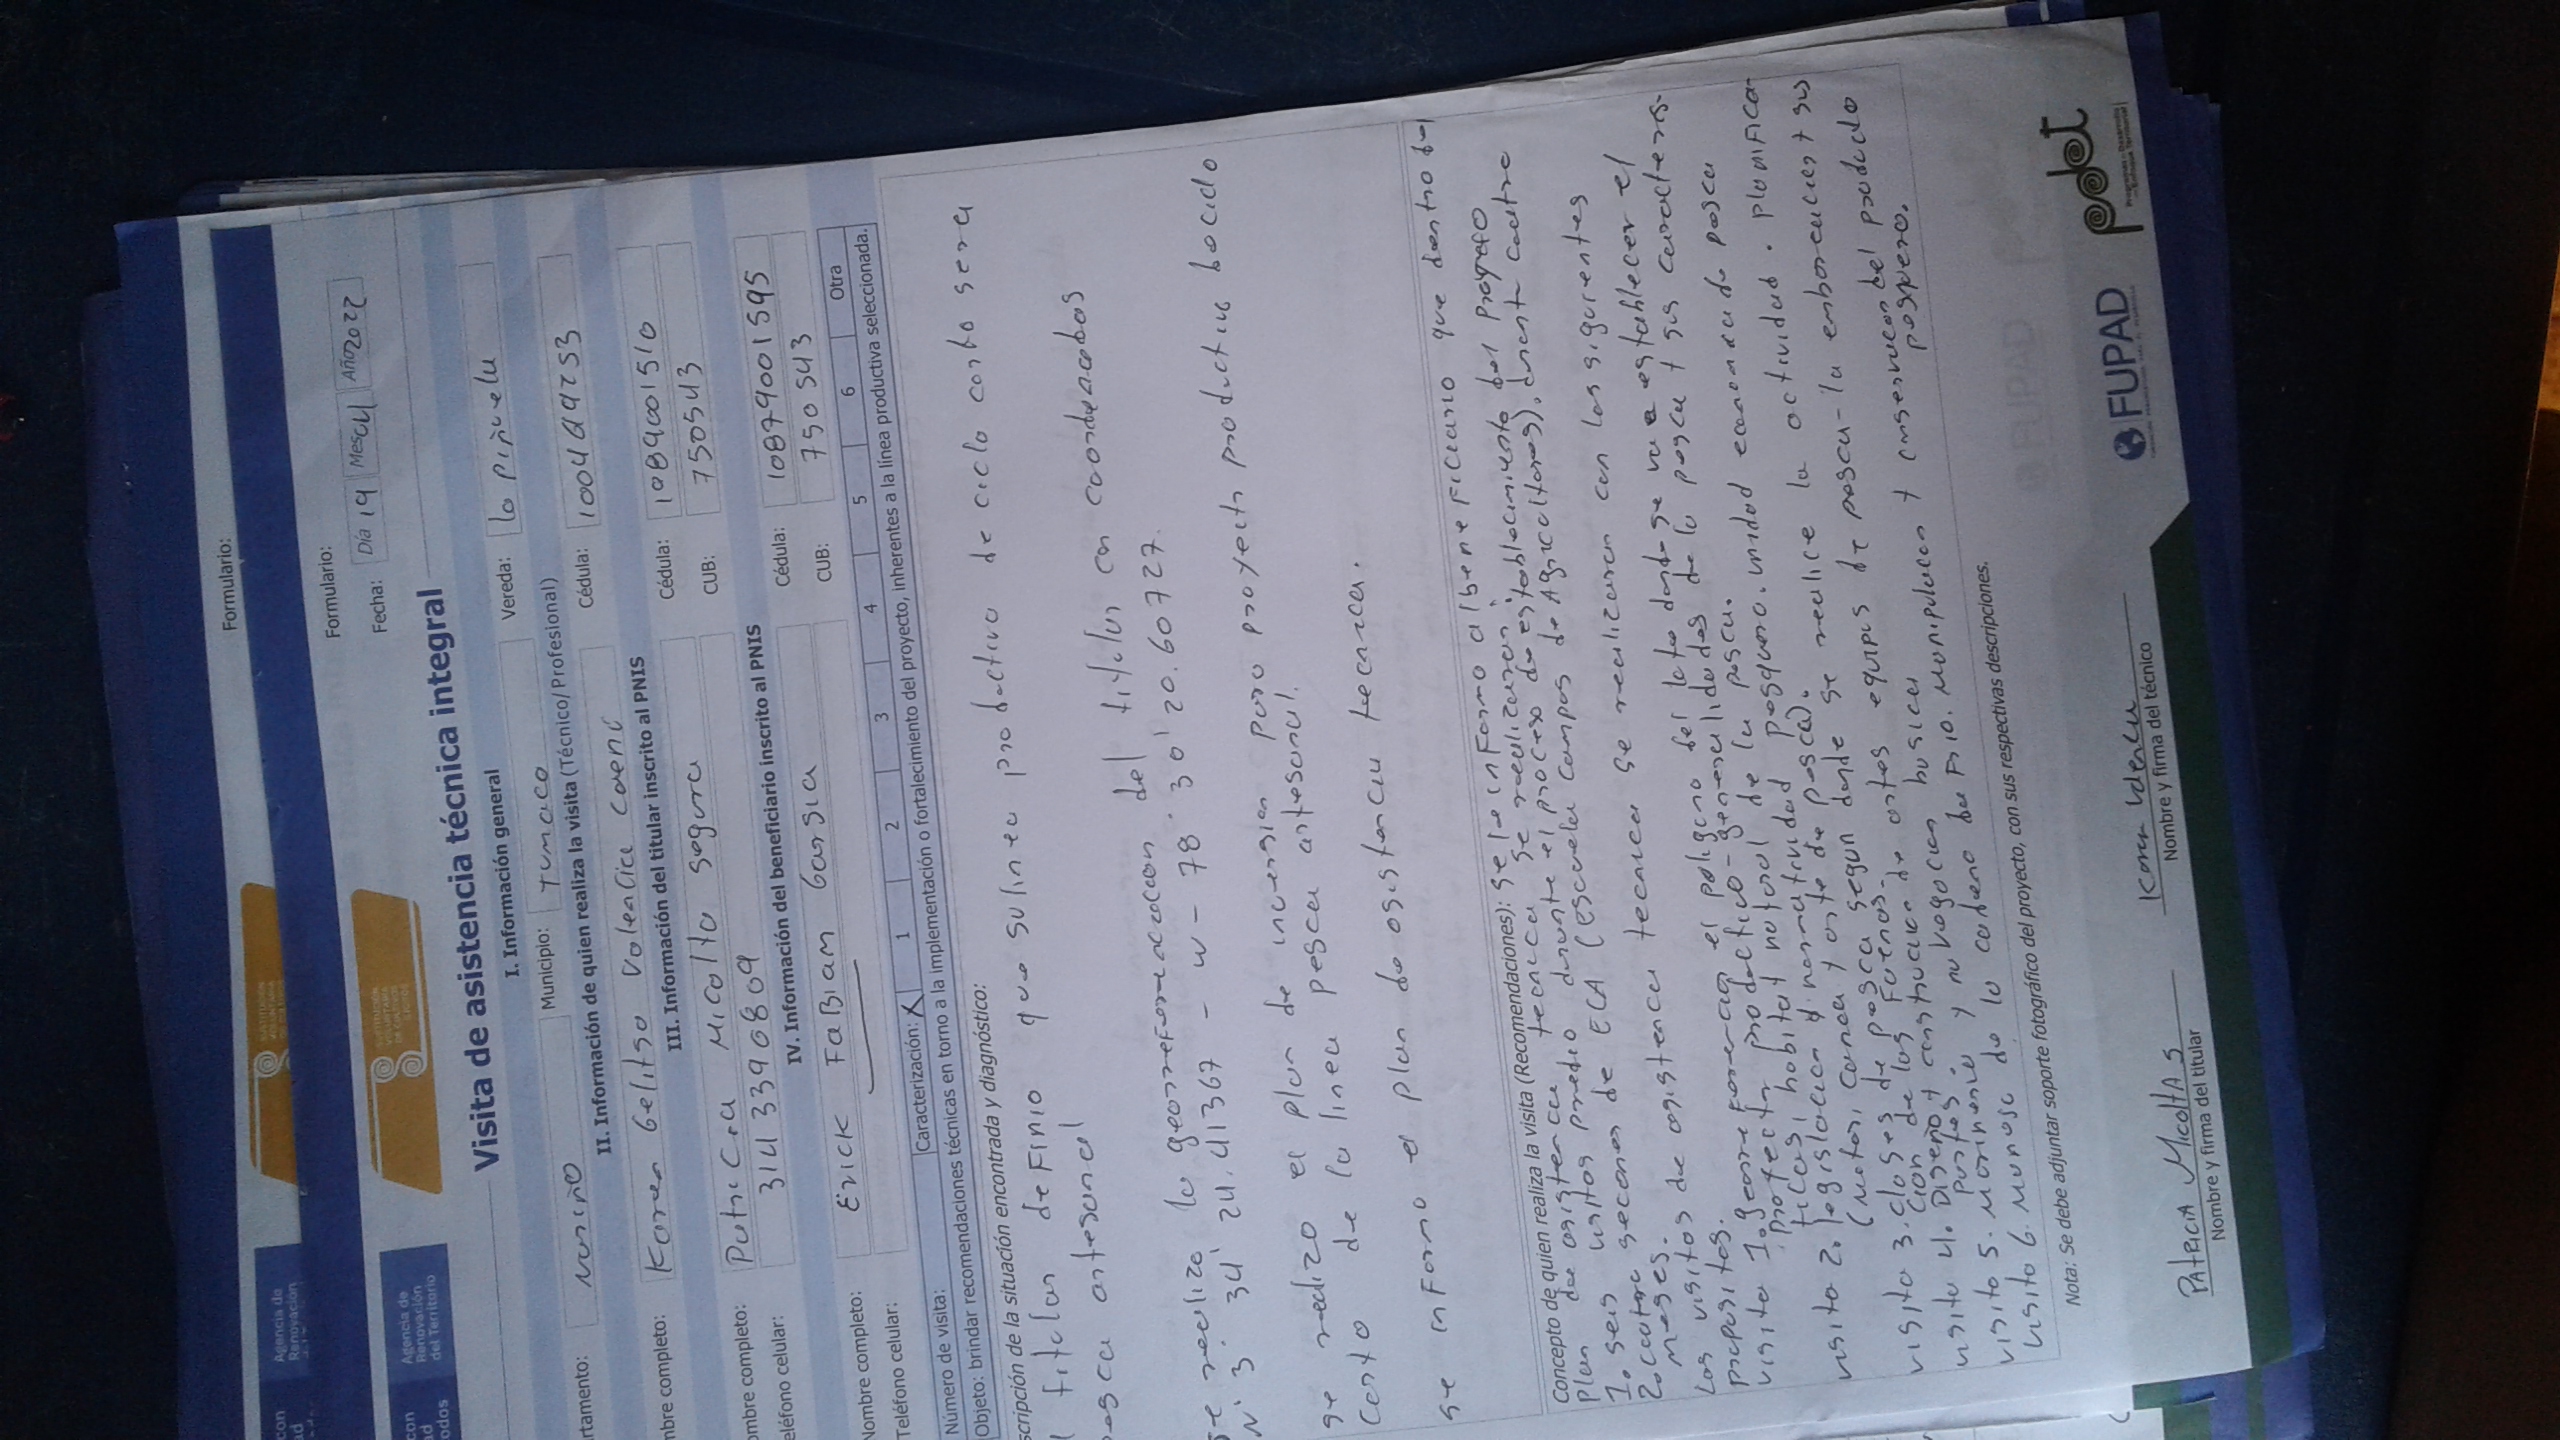 Formulario:
Agencia de
Renovación
Formulario:
Agencia de
Renovación
del Territorio
Fecha: Día 19 Mes 04 Año 2022
Visita de asistencia técnica integral
I. Información general
rtamento: Nariño Municipio: Tumaco Vereda: la piñuela
II. Información de quien realiza la visita (Técnico/Profesional)
mbre completo: Karen Gelitsa Valencia Cédula:
III. Información del titular inscrito al PNIS
ombre completo: Patricia Micolta Segura Cédula: 1089001510
eléfono celular: 3143396809 CUB: 750543
IV. Información del beneficiario inscrito al PNIS
Nombre completo: Erick Fabian Garsia Cédula: 10879001595
Teléfono celular: CUB: 750543
Número de visita: Caracterización: X 1 2 3 4 5 6 Otra
Objeto: brindar recomendaciones técnicas en torno a la implementación o fortalecimiento del proyecto, inherentes a la línea productiva seleccionada.
scripción de la situación encontrada y diagnóstico:
l titular definio que su linea productiva de ciclo corto sera
pesca artesanal
se realizo la georreferenciacion del titular en coordenadas
N' 3° 34' 24.41367 - W - 78. 30' 20.60727.
se realizo el plan de inversion para proyecto productivo de ciclo
corto de la linea pesca artesanal.
se informo el plan de asistencia tecnica.
Concepto de quien realiza la visita (Recomendaciones): se le informo al beneficiario que dentro del
plan de asistencia tecnica se realizaran:
1. seis visitas predio durante el proceso de establecimiento del proyecto
2. cuatro secciones de ECA (escuela campos de Agricultores), durante cuatro
meses.
Las visitas de asistencia tecnica se realizaran con los siguientes
propositos.
visita 1. georreferenciar el poligono del lote donde se va a establecer el
proyecto productivo - generalidades de la pesca y sus caracteris-
ticas, habitat natural de la pesca.
visita 2. legislacion y normatividad pesquero. unidad economica de pesca
(motor, canoa y arte de pesca).
visita 3. clases de pesca segun donde se realice la actividad. planifica-
cion de las faenas.
visita 4. Diseño y construccion de artes equipos de pesca - la embarcacion y sus
partes.
visita 5. Marineria y navegacion basica
visita 6. manejo de la cadena de frio. Manipulacion y conservacion del producto
pesquero.
Nota: Se debe adjuntar soporte fotográfico del proyecto, con sus respectivas descripciones.
Patricia Micolta S
Nombre y firma del titular
Karen Valencia
Nombre y firma del técnico
FUPAD
pdet